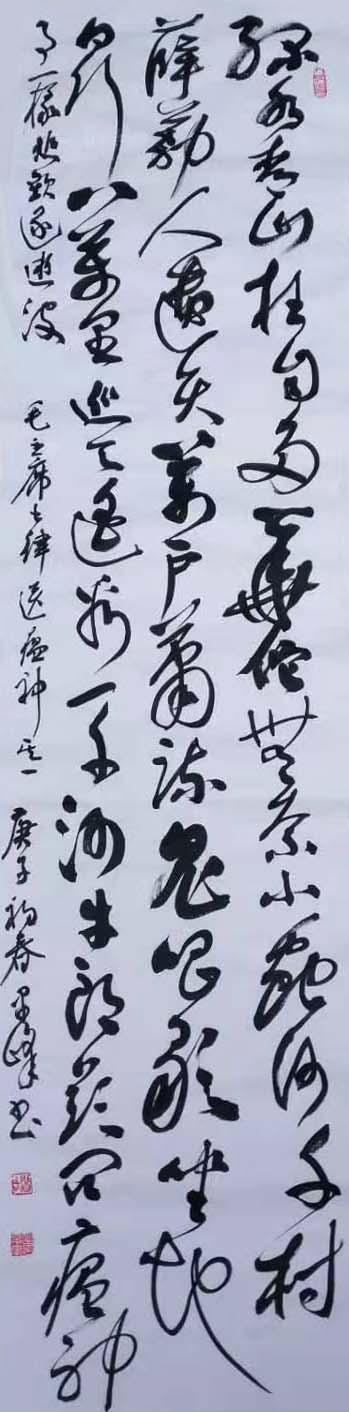 綠水青山枉自多華佗無奈小虫何千村
薜荔人遺矢萬户蕭疏鬼唱歌坐地
日行八萬里巡天遙看一千河牛郎欲問瘟神
事一樣悲歡逐逝波 毛主席七律送瘟神其一 庚子初春 峰书